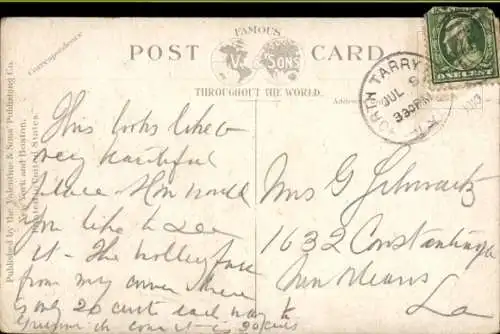 FAMOUS
POST CARD
V. & SONS
THROUGHOUT THE WORLD.
Correspondence
Address
Published by the Valentine & Sons' Publishing Co.
New York and Boston.
Printed in United States.
NORTH TARRY
JUL 9
330PM
N.Y.
ONE CENT
This looks like a
very beautiful
place How would
you like to see
it - The trolley fare
from my corner here
is only 20 cents each way &
it is 20 cents
Mrs G Schwartz
1632 Constantinople
New Orleans
La